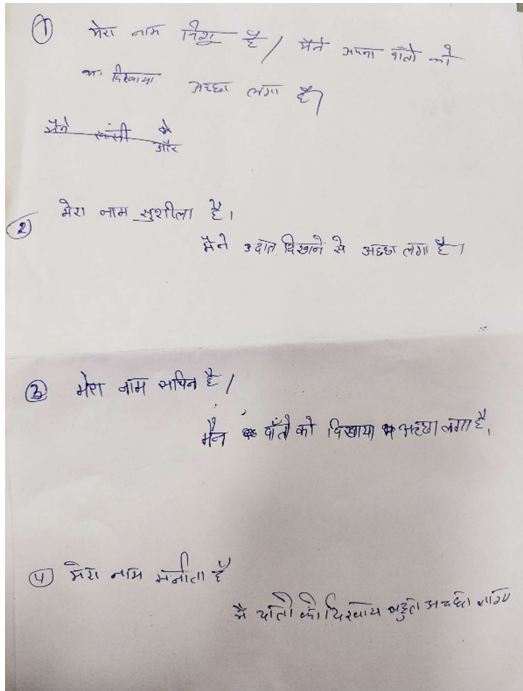 ① मेरा नाम विशु है / मैंने अपना दाँतो को
दिखाया अच्छा लगा है।
मैने और
② मेरा नाम सुशीला है।
मैने दात दिखाने से अच्छा लगा है।
③ मेरा नाम सचिन है /
मैन दाँतो को दिखाया अच्छा लगा है,
④ मेरा नाम अनीता है
मै दातो को दिखाय बहुत अच्छा